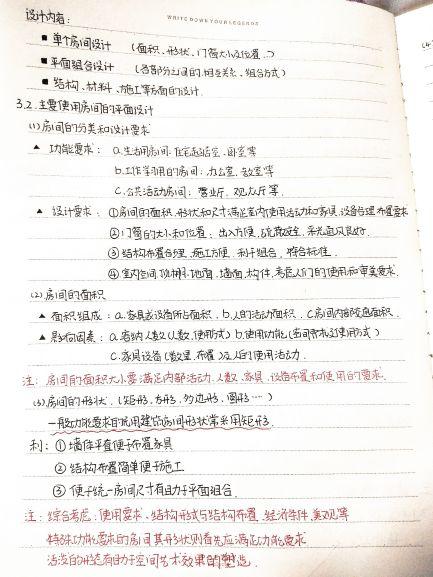 WRITE DOWN YOUR LEGENDS
设计内容:
■ 单个房间设计 (面积、形状、门窗大小及位置..)
■ 平面组合设计 (各部分之间的相互关系、组合方式)
■ 结构、材料、施工等方面的设计.
3.2. 主要使用房间的平面设计
(1) 房间的分类和设计要求
▲ 功能要求: a.生活用房间: 住宅起居室、卧室等
b.工作学习用的房间: 办公室、教室等
c.公共活动房间: 营业厅、观众厅等.
▲ 设计要求: ①房间的面积、形状和尺寸满足室内使用活动和家具、设备合理布置要求
②门窗的大小和位置: 出入方便、疏散安全、采光通风良好.
③结构布置合理、施工方便、利于组合、符合标准.
④室内空间、顶棚、地面、墙面、构件、考虑人们的使用和审美要求.
(2) 房间的面积
▲ 面积组成: a.家具或设备所占面积、b.人的活动面积、c.房间内部交通面积.
▲ 影响因素: a.容纳人数(人数、使用方式) b.使用功能(
c.家具设备(数量、布置)及人的使用活动.
注: 房间的面积大小要满足内部活动、人数、家具、设备布置和使用的要求.
(3) 房间的形状. (矩形、方形、多边形、圆形……)
一般功能要求的民用建筑房间形状常采用矩形.
利: ①墙体平直便于布置家具
②结构布置简单便于施工
③便于统一房间尺寸有助于平面组合.
注: 综合考虑: 使用要求、结构形式与结构布置、经济条件、美观等
特殊功能要求的房间其形状则首先应满足功能要求
活泼的形态有助于空间艺术效果的塑造.